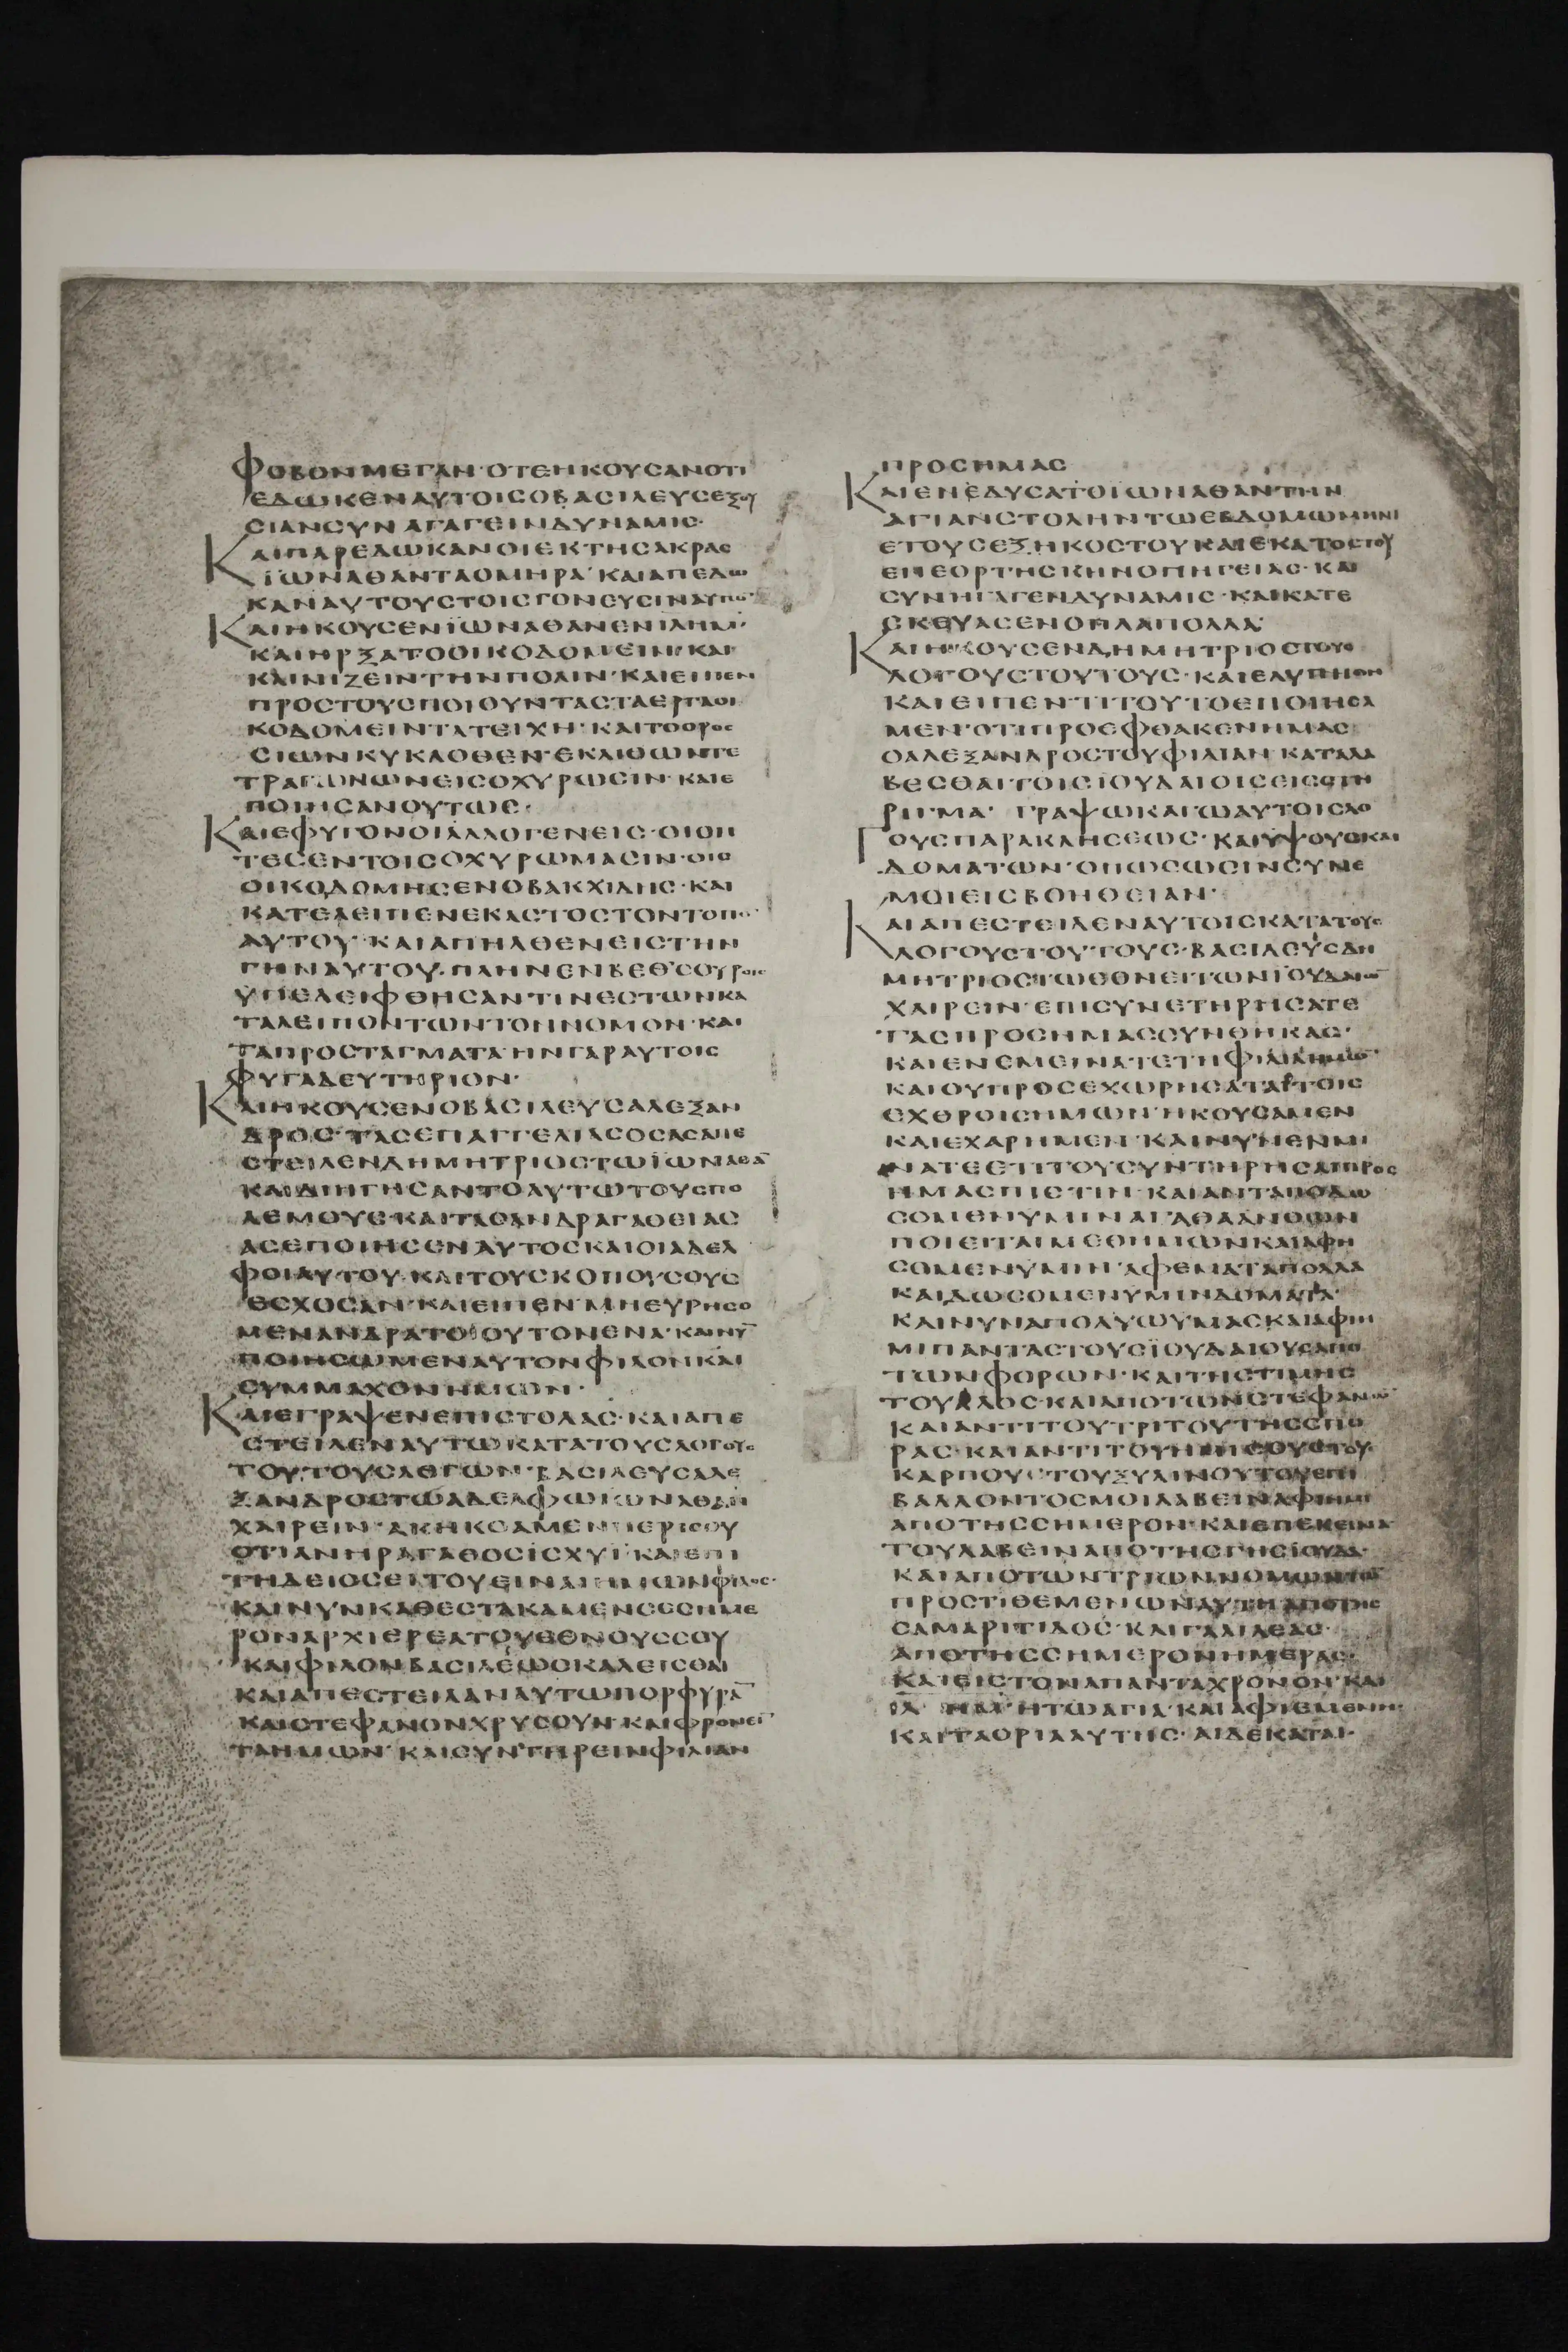 ΦΟΒΟΝΜΕΓΑΝ·ΟΤΕΗΚΟΥΣΑΝΟΤΙ
ΕΔΩΚΕΝΑΥΤΟΙΣΟΒΑΣΙΛΕΥΣΕΞΟΥ
ΣΙΑΝΣΥΝΑΓΑΓΕΙΝΔΥΝΑΜΙΣ·
ΚΑΙΠΑΡΕΔΩΚΑΝΟΙΕΚΤΗΣΑΚΡΑΣ
ΙΩΝΑΘΑΝΤΑΟΜΗΡΑ·ΚΑΙΑΠΕΔΩ
ΚΑΝΑΥΤΟΥΣΤΟΙΣΓΟΝΕΥΣΙΝΑΥΤΩ̅·
ΚΑΙΗΚΟΥΣΕΝΙΩΝΑΘΑΝΕΝΙΛΗΜ·
ΚΑΙΗΡΞΑΤΟΟΙΚΟΔΟΜΕΙΝΚΑΙ
ΚΑΙΝΙΖΕΙΝΤΗΝΠΟΛΙΝ·ΚΑΙΕΙΠΕΝ
ΠΡΟΣΤΟΥΣΠΟΙΟΥΝΤΑΣΤΑΕΡΓΑΟΙ
ΚΟΔΟΜΕΙΝΤΑΤΕΙΧΗ·ΚΑΙΤΟΟΡΟΣ
ΣΙΩΝΚΥΚΛΟΘΕΝ·ΕΚΛΙΘΩΝΤΕ
ΤΡΑΓΩΝΩΝΕΙΣΟΧΥΡΩΣΙΝ·ΚΑΙΕ
ΠΟΙΗΣΑΝΟΥΤΩΣ·
ΚΑΙΕΦΥΓΟΝΟΙΑΛΛΟΓΕΝΕΙΣ·ΟΙΟΝ
ΤΕΣΕΝΤΟΙΣΟΧΥΡΩΜΑΣΙΝ·ΟΙΣ
ΟΙΚΟΔΟΜΗΣΕΝΟΒΑΚΧΙΔΗΣ·ΚΑΙ
ΚΑΤΕΛΕΙΠΕΝΕΚΑΣΤΟΣΤΟΝΤΟΠΟ̅
ΑΥΤΟΥ·ΚΑΙΑΠΗΛΘΕΝΕΙΣΤΗΝ
ΓΗΝΑΥΤΟΥ·ΠΛΗΝΕΝΒΕΘΣΟΥΡΟΙΣ
ΥΠΕΛΕΙΦΘΗΣΑΝΤΙΝΕΣΤΩΝΚΑ
ΤΑΛΕΙΠΟΝΤΩΝΤΟΝΝΟΜΟΝ·ΚΑΙ
ΤΑΠΡΟΣΤΑΓΜΑΤΑ·ΗΝΓΑΡΑΥΤΟΙΣ
ΦΥΓΑΔΕΥΤΗΡΙΟΝ·
ΚΑΙΗΚΟΥΣΕΝΟΒΑΣΙΛΕΥΣΑΛΕΞΑΝ
ΔΡΟΣ·ΤΑΣΕΠΑΓΓΕΛΙΑΣΟΣΑΣΑΠΕ
ΣΤΕΙΛΕΝΔΗΜΗΤΡΙΟΣΤΩΙΩΝΑΘΑ̅
ΚΑΙΔΙΗΓΗΣΑΝΤΟΑΥΤΩΤΟΥΣΠΟ
ΛΕΜΟΥΣ·ΚΑΙΤΑΣΑΝΔΡΑΓΑΘΕΙΑΣ
ΑΣΕΠΟΙΗΣΕΝΑΥΤΟΣΚΑΙΟΙΑΔΕΛ
ΦΟΙΑΥΤΟΥ·ΚΑΙΤΟΥΣΚΟΠΟΥΣΟΥΣ
ΕΣΧΟΣΑΝ·ΚΑΙΕΙΠΕΝ·ΜΗΕΥΡΗΣΟ
ΜΕΝΑΝΔΡΑΤΟΙΟΥΤΟΝΕΝΑ·ΚΑΙΝΥ̅
ΠΟΙΗΣΩΜΕΝΑΥΤΟΝΦΙΛΟΝΚΑΙ
ΣΥΜΜΑΧΟΝΗΜΩΝ·
ΚΑΙΕΓΡΑΨΕΝΕΠΙΣΤΟΛΑΣ·ΚΑΙΑΠΕ
ΣΤΕΙΛΕΝΑΥΤΩΚΑΤΑΤΟΥΣΛΟΓΟΥΣ
ΤΟΥΤΟΥΣΛΕΓΩΝ·ΒΑΣΙΛΕΥΣΑΛΕ
ΞΑΝΔΡΟΣΤΩΑΔΕΛΦΩΙΩΝΑΘΑΝ
ΧΑΙΡΕΙΝ·ΑΚΗΚΟΑΜΕΝΠΕΡΙΣΟΥ
ΟΤΙΑΝΗΡΑΓΑΘΟΣΙΣΧΥΙ·ΚΑΙΕΠΙ
ΤΗΔΕΙΟΣΕΙΤΟΥΕΙΝΑΙΗΜΩΝΦΙΛΟΣ·
ΚΑΙΝΥΝΚΑΘΕΣΤΑΚΑΜΕΝΣΕΣΗΜΕ
ΡΟΝΑΡΧΙΕΡΕΑΤΟΥΕΘΝΟΥΣΣΟΥ
ΚΑΙΦΙΛΟΝΒΑΣΙΛΕΩΣΚΑΛΕΙΣΘΑΙ
ΚΑΙΑΠΕΣΤΕΙΛΑΝΑΥΤΩΠΟΡΦΥΡΑ̅
ΚΑΙΣΤΕΦΑΝΟΝΧΡΥΣΟΥΝ·ΚΑΙΦΡΟΝΕΙ̅
ΤΑΗΜΩΝ·ΚΑΙΣΥΝΤΗΡΕΙΝΦΙΛΙΑΝ
ΠΡΟΣΗΜΑΣ
ΚΑΙΕΝΕΔΥΣΑΤΟΙΩΝΑΘΑΝΤΗΝ
ΑΓΙΑΝΣΤΟΛΗΝΤΩΕΒΔΟΜΩΜΗΝΙ
ΕΤΟΥΣΕΞΗΚΟΣΤΟΥΚΑΙΕΚΑΤΟΣΤΟΥ
ΕΝΕΟΡΤΗΣΚΗΝΟΠΗΓΕΙΑΣ·ΚΑΙ
ΣΥΝΗΓΑΓΕΝΔΥΝΑΜΙΣ·ΚΑΙΚΑΤΕ
ΣΚΕΥΑΣΕΝΟΠΛΑΠΟΛΛΑ·
ΚΑΙΗΚΟΥΣΕΝΔΗΜΗΤΡΙΟΣΤΟΥΣ
ΛΟΓΟΥΣΤΟΥΤΟΥΣ·ΚΑΙΕΛΥΠΗΘΗ
ΚΑΙΕΙΠΕΝ·ΤΙΤΟΥΤΟΕΠΟΙΗΣΑ
ΜΕΝ·ΟΤΙΠΡΟΕΦΘΑΚΕΝΗΜΑΣ
ΟΑΛΕΞΑΝΔΡΟΣΤΟΥΦΙΛΙΑΝ·ΚΑΤΑΛΑ
ΒΕΣΘΑΙΤΟΙΣΙΟΥΔΑΙΟΙΣΕΙΣΣΤΗ
ΡΙΓΜΑ· ΓΡΑΨΩΚΑΓΩΑΥΤΟΙΣΛΟ
ΓΟΥΣΠΑΡΑΚΛΗΣΕΩΣ·ΚΑΙΥΨΟΥΣΚΑΙ
ΔΟΜΑΤΩΝ·ΟΠΩΣΩΣΙΝΣΥΝΕ
ΜΟΙΕΙΣΒΟΗΘΕΙΑΝ·
ΚΑΙΑΠΕΣΤΕΙΛΕΝΑΥΤΟΙΣΚΑΤΑΤΟΥΣ
ΛΟΓΟΥΣΤΟΥΤΟΥΣ·ΒΑΣΙΛΕΥΣΔΗ
ΜΗΤΡΙΟΣΤΩΕΘΝΕΙΤΩΝΙΟΥΔΑΙΩ̅
ΧΑΙΡΕΙΝ·ΕΠΙΣΥΝΕΤΗΡΗΣΑΤΕ
ΤΑΣΠΡΟΣΗΜΑΣΣΥΝΘΗΚΑΣ·
ΚΑΙΕΝΕΜΕΙΝΑΤΕΤΗΦΙΛΙΑΗΜΩ̅·
ΚΑΙΟΥΠΡΟΣΕΧΩΡΗΣΑΤΑΙΤΟΙΣ
ΕΧΘΡΟΙΣΗΜΩΝ·ΗΚΟΥΣΑΜΕΝ
ΚΑΙΕΧΑΡΗΜΕΝ·ΚΑΙΝΥΝΕΝΜΙ
ΝΑΤΕΕΤΙΤΟΥΣΥΝΤΗΡΗΣΑΙΠΡΟΣ
ΗΜΑΣΠΙΣΤΙΝ·ΚΑΙΑΝΤΑΠΟΔΩ
ΣΟΜΕΝΥΜΙΝΑΓΑΘΑΑΝΘΩΝ
ΠΟΙΕΙΤΑΙΜΕΘΗΜΩΝΚΑΙΑΦΗ
ΣΟΜΕΝΥΜΙΝΑΦΕΜΑΤΑΠΟΛΛΑ
ΚΑΙΔΩΣΟΜΕΝΥΜΙΝΔΟΜΑΤΑ·
ΚΑΙΝΥΝΑΠΟΛΥΩΥΜΑΣΚΑΙΑΦΙΗ
ΜΙΠΑΝΤΑΣΤΟΥΣΙΟΥΔΑΙΟΥΣΑΠΟ
ΤΩΝΦΟΡΩΝ·ΚΑΙΤΗΣΤΙΜΗΣ
ΤΟΥΑΛΟΣ·ΚΑΙΑΠΟΤΩΝΣΤΕΦΑΝΩ̅
ΚΑΙΑΝΤΙΤΟΥΤΡΙΤΟΥΤΗΣΣΠΟ
ΡΑΣ·ΚΑΙΑΝΤΙΤΟΥΗΜΙΣΟΥΣΤΟΥ
ΚΑΡΠΟΥΤΟΥΞΥΛΙΝΟΥΤΟΥΕΠΙ
ΒΑΛΛΟΝΤΟΣΜΟΙΛΑΒΕΙΝΑΦΙΗΜΙ
ΑΠΟΤΗΣΣΗΜΕΡΟΝ·ΚΑΙΕΠΕΚΕΙΝΑ
ΤΟΥΛΑΒΕΙΝΑΠΟΤΗΣΓΗΣΙΟΥΔΑ·
ΚΑΙΑΠΟΤΩΝΤΡΙΩΝΝΟΜΩΝΤΩ̅
ΠΡΟΣΤΙΘΕΜΕΝΩΝΑΥΤΗΑΠΟΤΗΣ
ΣΑΜΑΡΙΤΙΔΟΣ·ΚΑΙΓΑΛΙΛΕΑΣ·
ΑΠΟΤΗΣΣΗΜΕΡΟΝΗΜΕΡΑΣ·
ΚΑΙΕΙΣΤΟΝΑΠΑΝΤΑΧΡΟΝΟΝ·ΚΑΙ
ΙΛΗΜ·ΗΤΩΑΓΙΑ·ΚΑΙΑΦΙΕΜΕΝΗ·
ΚΑΙΤΑΟΡΙΑΑΥΤΗΣ·ΑΙΔΕΚΑΤΑΙ·